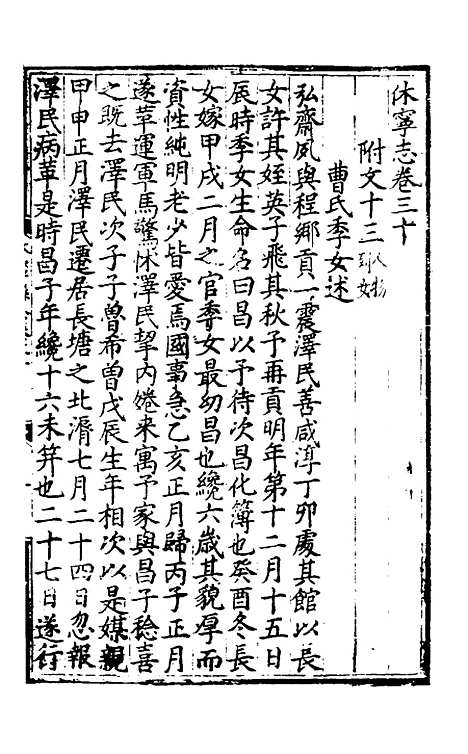 休寧志卷三十
附文十三 人物 列女
曹氏季女述
弘齋夙與程鄉貢一震澤民善咸淳丁卯處其館以長
女許其姪英子飛其秋予再貢明年第十二月十五日
辰時季女生命名曰昌以予待次昌化簿也癸酉冬長
女嫁甲戌二月之官季女最幼昌也纔六歲其貌厚而
資性純明老少皆愛焉國事急乙亥正月歸丙子正月
遂革運軍馬驚怵澤民挈內婘來寓予家與昌子稔喜
之既去澤民次子子曾希曾戊辰生年相次以是媒親
甲申正月澤民遷居長塘之北漘七月二十四日忽報
澤民病革是時昌子年纔十六未笄也二十七日遂行